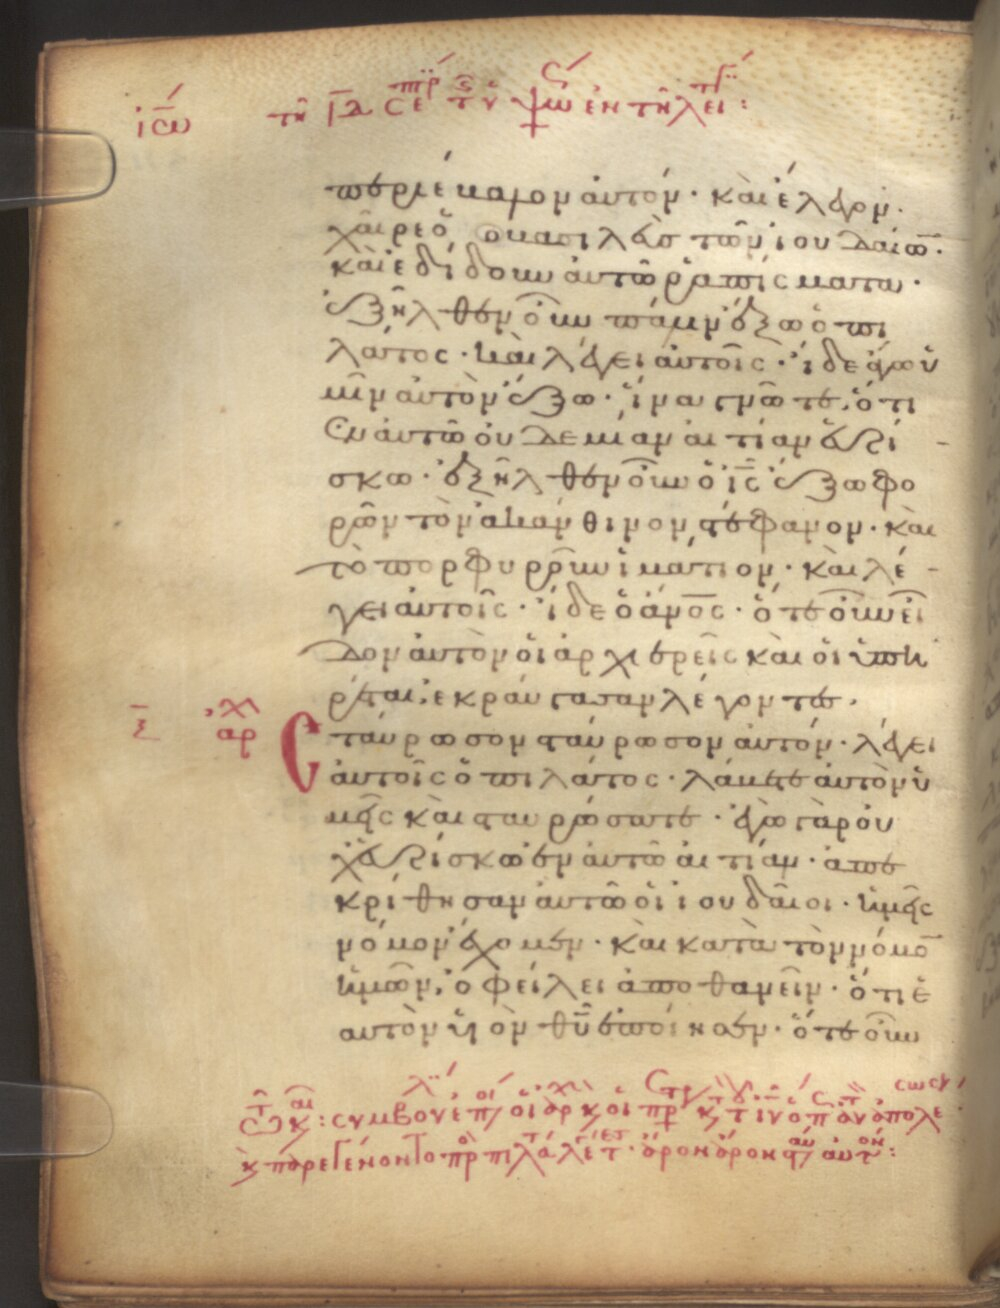 περιέβαλον αὐτόν · καὶ ἔλεγον ·
χαῖρε ὁ βασιλεὺς τῶν ἰουδαίω̅ ·
καὶ ἐδίδουν αὐτῶ ῥαπίσματα ·
ἐξῆλθεν οὖν πάλιν ἔξω ὁ πι
λάτος · καὶ λέγει αὐτοῖς · ἴδε ἄγω ὑ
μῖν αὐτὸν ἔξω · ἵνα γνῶτε, ὅτι
ἐν αὐτῶ οὐδεμίαν αἰτίαν εὑρί
σκω · ἐξῆλθεν οὖν ὁ ι̅ς̅ ἔξω φο
ρῶν τὸν ἀκάνθινον στέφανον · καὶ
τὸ πορφυροῦν ἱμάτιον · καὶ λέ
γει αὐτοῖς · ἴδε ὁ α̅ν̅ο̅ς̅ · ὅτε οὖν εἶ
δον αὐτὸν οἱ ἀρχιερεῖς καὶ οἱ ὑπη
ρέται, ἐκραύγασαν λέγοντες ·
σταύρωσον σταύρωσον αὐτόν · λέγει
αὐτοῖς ὁ πιλάτος · λάβετε αὐτὸν ὑ
μεῖς καὶ σταυρώσατε · ἐγὼ γὰρ οὐ
χ εὑρίσκω ἐν αὐτῶ αἰτίαν · ἀπε
κρίθησαν αὐτῶ οἱ ἰουδαῖοι · ἡμεῖς
νόμον ἔχομεν · καὶ κατὰ τὸν νόμο̅
ἡμῶν, ὀφείλει ἀποθανεῖν · ὅτι ἑ
αυτὸν υἱὸν θ̅υ̅ ἐποίησεν · ὅτε οὖν